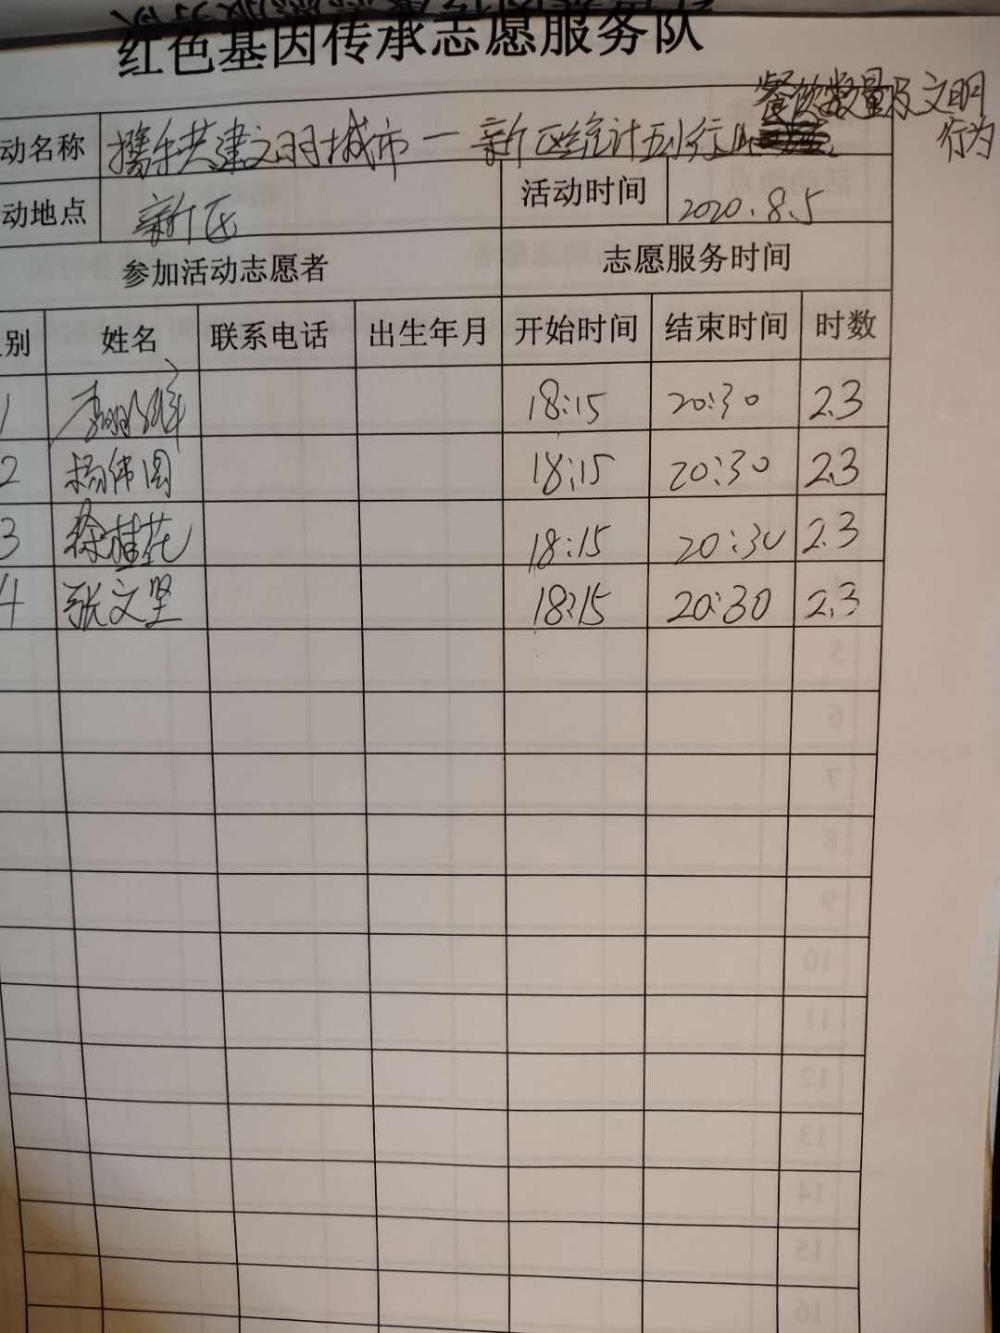 红色基因传承志愿服务队
餐饮数量及文明
行为
动名称 携手共建文明城市一新区统计五小行业
动地点 新区 活动时间 2020.8.5
参加活动志愿者 志愿服务时间
别 姓名 联系电话 出生年月 开始时间 结束时间 时数
1 18:15 20:30 2.3
2 杨伟国 18:15 20:30 2.3
3 徐桂花 18:15 20:30 2.3
4 张文坚 18:15 20:30 2.3